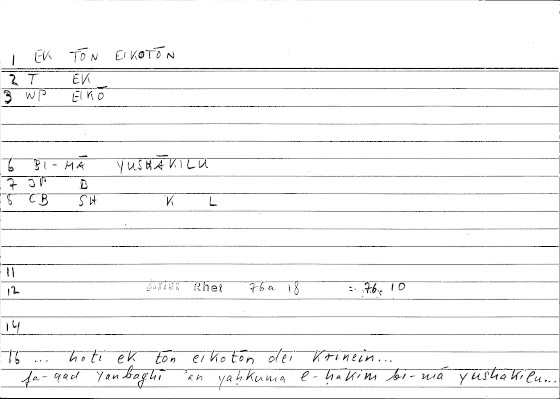 1 EK TŌN EIKOTŌN
2 T EK
3 WP EIKŌ
6 BI-MĀ YUSHĀKILU
7 JP B
8 CB SH K L
11
12 Rhet 76a 18 = 76, 10
14
16 ... hoti ek tōn eikotōn dei krinein...
fa-qad yanbaghī 'an yaḥkuma l-ḥākim bi-mā yushākilu...